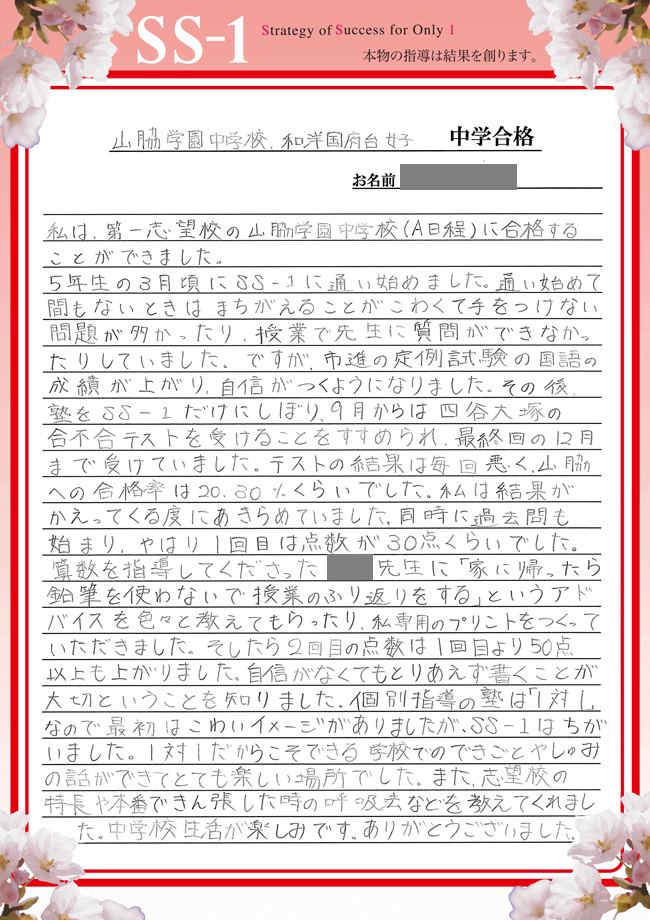 SS-1 Strategy of Success for Only 1
本物の指導は結果を創ります。
山脇学園中学校、和洋国府台女子 中学合格
お名前
私は、第一志望校の山脇学園中学校(A日程)に合格する
ことができました。
5年生の3月頃にSS-1に通い始めました。通い始めて
間もないときはまちがえることがこわくて手をつけない
問題が多かったり、授業で先生に質問ができなかっ
たりしていました。ですが、市進の定例試験の国語の
成績が上がり、自信がつくようになりました。その後、
塾をSS-1だけにしぼり、9月からは四谷大塚の
合不合テストを受けることをすすめられ、最終回の12月
まで受けていました。テストの結果は毎回悪く、山脇
への合格率は20、30%くらいでした。私は結果が
かえってくる度にあきらめていました。同時に過去問も
始まり、やはり1回目は点数が30点くらいでした。
算数を指導してくださった 先生に「家に帰ったら
鉛筆を使わないで授業のふり返りをする」というアド
バイスを色々と教えてもらったり、私専用のプリントをつくって
いただきました。そしたら2回目の点数は1回目より50点
以上も上がりました。自信がなくてもとりあえず書くことが
大切ということを知りました。個別指導の塾は「1対1」
なので最初はこわいイメージがありましたが、SS-1はちが
いました。1対1だからこそできる学校でのできごとやしゅみ
の話ができてとても楽しい場所でした。また、志望校の
特長や本番できん張した時の呼吸法などを教えてくれまし
た。中学校生活が楽しみです。ありがとうございました。